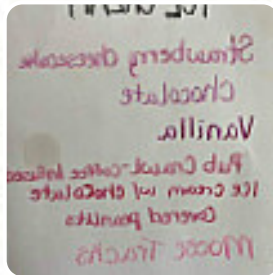 ICE CREAM
Strawberry cheesecake
Chocolate
Vanilla
Pub Crawl-coffee infused
Ice cream w/ chocolate
Covered peanuts
Moose Tracks